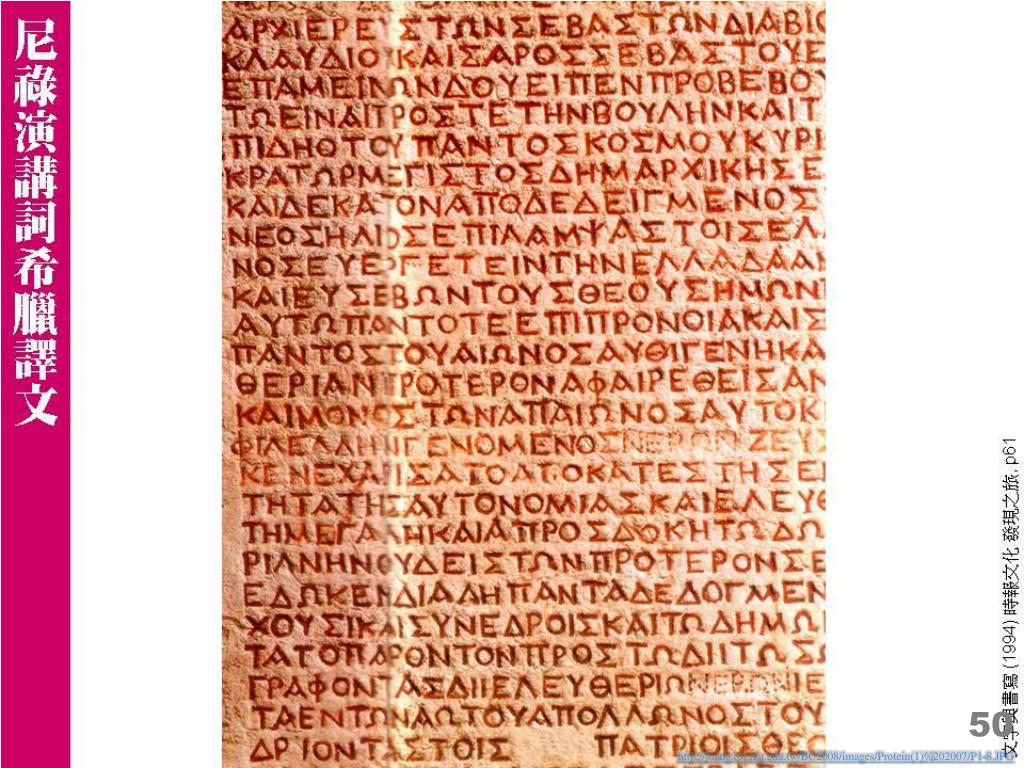 尼祿演講詞希臘譯文
ΑΡΧΙΕΡΕΣΤΩΝΣΕΒΑΣΤΩΝΔΙΑΒΙΟ
ΚΛΑΥΔΙΟΥΚΑΙΣΑΡΟΣΣΕΒΑΣΤΟΥΕ
ΕΠΑΜΕΙΝΩΝΔΟΥΕΙΠΕΝΠΡΟΒΕΒΟΥ
ΤΩΕΙΝΑΙΠΡΟΣΤΕΤΗΝΒΟΥΛΗΝΚΑΙΤ
ΠΙΔΗΟΤΟΥΠΑΝΤΟΣΚΟΣΜΟΥΚΥΡΙ
ΚΡΑΤΩΡΜΕΓΙΣΤΟΣΔΗΜΑΡΧΙΚΗΣΕ
ΚΑΙΔΕΚΑΤΟΝΑΠΟΔΕΔΕΙΓΜΕΝΟΣ
ΝΕΟΣΗΛΙΟΣΕΠΙΛΑΜΨΑΣΤΟΙΣΕΛ
ΝΟΣΕΥΕΡΓΕΤΕΙΝΤΗΝΕΛΛΑΔΑΑΝ
ΚΑΙΕΥΣΕΒΩΝΤΟΥΣΘΕΟΥΣΗΜΩΝ
ΑΥΤΩΠΑΝΤΟΤΕΕΠΙΠΡΟΝΟΙΑΚΑΙΣ
ΠΑΝΤΟΣΤΟΥΑΙΩΝΟΣΑΥΘΙΓΕΝΗΚΑ
ΘΕΡΙΑΝΠΡΟΤΕΡΟΝΑΦΑΙΡΕΘΕΙΣΑΝ
ΚΑΙΜΟΝΟΣΤΩΝΑΠΑΙΩΝΟΣΑΥΤΟΚ
ΦΙΛΕΛΛΗΝΓΕΝΟΜΕΝΟΣΝΕΡΩΝΖΕΥΣ
ΚΕΝΕΧΑΡΙΣΑΤΟΑΠΟΚΑΤΕΣΤΗΣΕ
ΤΗΤΑΤΗΣΑΥΤΟΝΟΜΙΑΣΚΑΙΕΛΕΥΘ
ΤΗΜΕΓΑΛΗΚΑΙΑΠΡΟΣΔΟΚΗΤΩΔΩ
ΡΙΑΝΗΝΟΥΔΕΙΣΤΩΝΠΡΟΤΕΡΟΝΣΕ
ΕΔΩΚΕΝΔΙΑΔΗΠΑΝΤΑΔΕΔΟΓΜΕΝ
ΧΟΥΣΙΚΑΙΣΥΝΕΔΡΟΙΣΚΑΙΤΩΔΗΜΩ
ΤΑΤΟΠΑΡΟΝΤΟΝΠΡΟΣΤΩΔΙΙΤΩΣΩ
ΓΡΑΦΟΝΤΑΣΔΙΙΕΛΕΥΘΕΡΙΩΝΕΡΩΝΙΕ
ΤΑΕΝΤΩΝΑΩΤΟΥΑΠΟΛΛΩΝΟΣΤΟΥ
ΔΡΙΟΝΤΑΣΤΟΙΣ ΠΑΤΡΙΟΙΣΘΕΟ
文字與書寫 (1994) 時報文化 發現之旅, p61
50
http://juang.bst.ntu.edu.tw/BC2008/images/Protein(1)%202007/P1-8.JPG